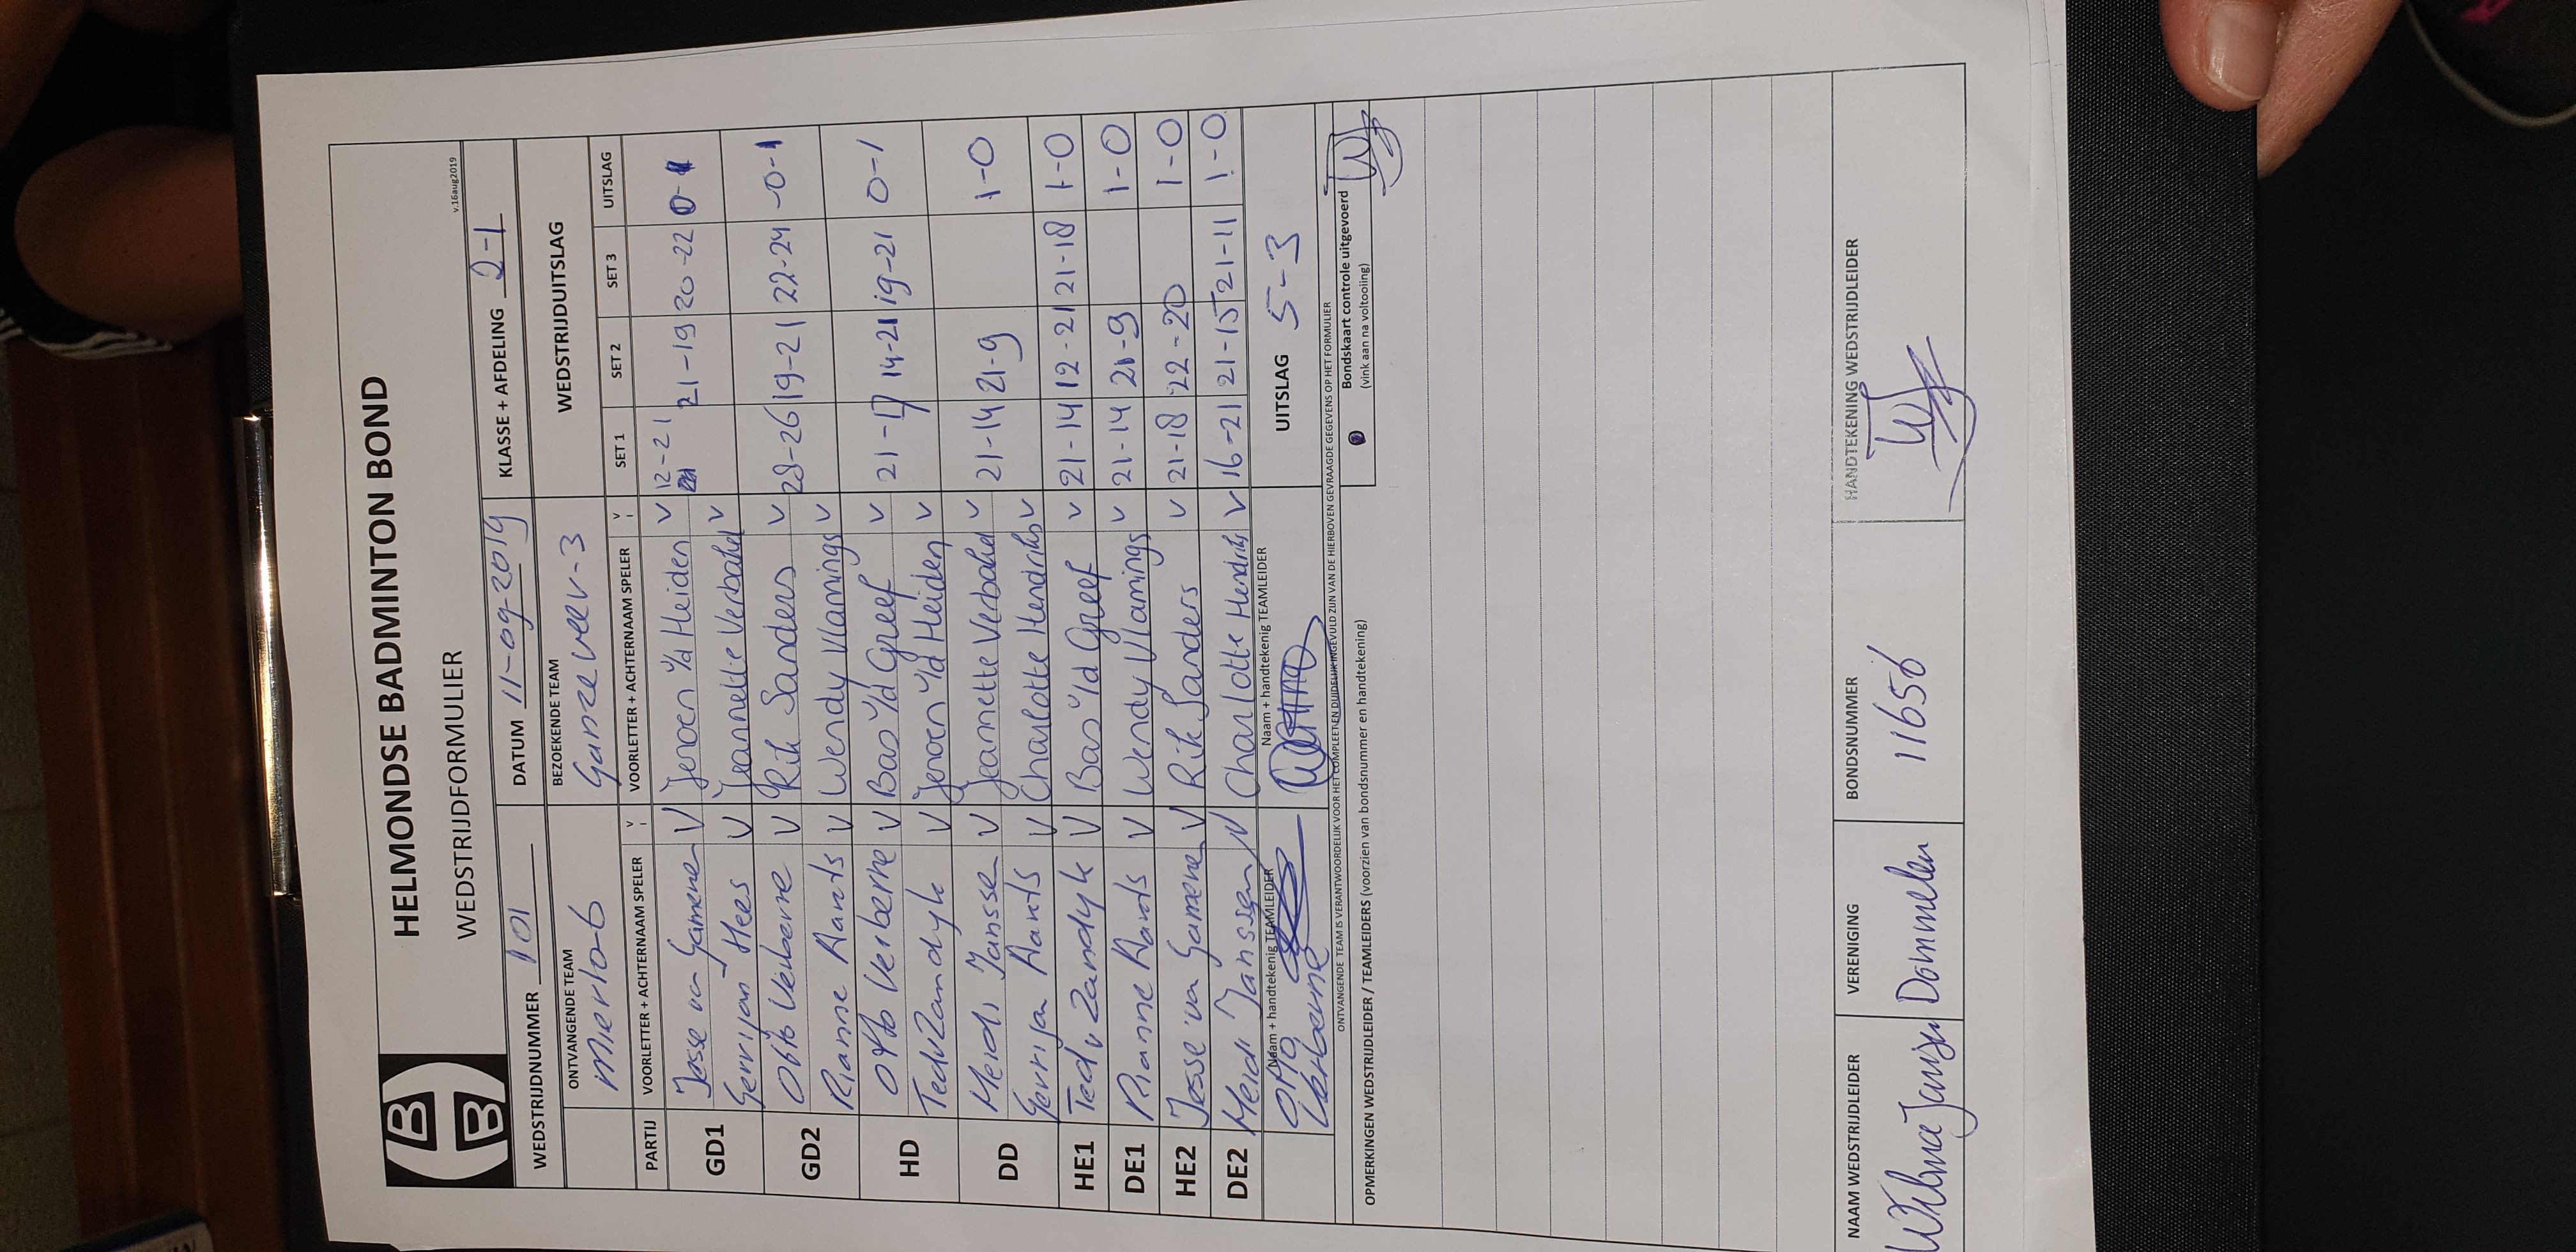 HELMONDSE BADMINTON BOND
WEDSTRIJDFORMULIER
v.16aug2019
WEDSTRIJDNUMMER 101 DATUM 11-09-2019 KLASSE + AFDELING 2-1
ONTVANGENDE TEAM BEZOEKENDE TEAM WEDSTRIJDUITSLAG
Mierlo-6 Ganzeveer-3
PARTIJ VOORLETTER + ACHTERNAAM SPELER V VOORLETTER + ACHTERNAAM SPELER V SET 1 SET 2 SET 3 UITSLAG
GD1 Jesse van Gameren V Jeroen v/d Heiden V 12-21 21-19 20-22 0-1
Gerrijan Hees V Jeannette Verbakel V
GD2 Otto Verberne V Rik Sanders V 28-26 19-21 22-24 -0-1
Rianne Aarts V Wendy Vlamings V
HD Otto Verberne V Bas v/d Greef V 21-17 14-21 19-21 0-1
Ted v Zandyk V Jeroen v/d Heiden V
DD Heidi Janssen V Jeannette Verbakel V 21-14 21-9 1-0
Gerrijan Aarts V Charlotte Hendriks V
HE1 Ted v Zandyk V Bas v/d Greef V 21-14 12-21 21-18 1-0
DE1 Rianne Aarts V Wendy Vlamings V 21-14 21-9 1-0
HE2 Jesse van Gameren V Rik Sanders V 21-18 22-20 1-0
DE2 Heidi Janssen V Charlotte Hendriks V 16-21 21-15 21-11 1-0
Naam + handtekenig TEAMLEIDER Naam + handtekenig TEAMLEIDER UITSLAG 5-3
Otto Verberne
ONTVANGENDE TEAM IS VERANTWOORDELIJK VOOR HET COMPLEET EN DUIDELIJK INGEVULD ZIJN VAN DE HIERBOVEN GEVRAAGDE GEGEVENS OP HET FORMULIER
Bondskaart controle uitgevoerd
(vink aan na voltooiing)
OPMERKINGEN WEDSTRIJDLEIDER / TEAMLEIDERS (voorzien van bondsnummer en handtekening)
NAAM WEDSTRIJDLEIDER VERENIGING BONDSNUMMER HANDTEKENING WEDSTRIJDLEIDER
Wilma Jansen Dommelen 11656